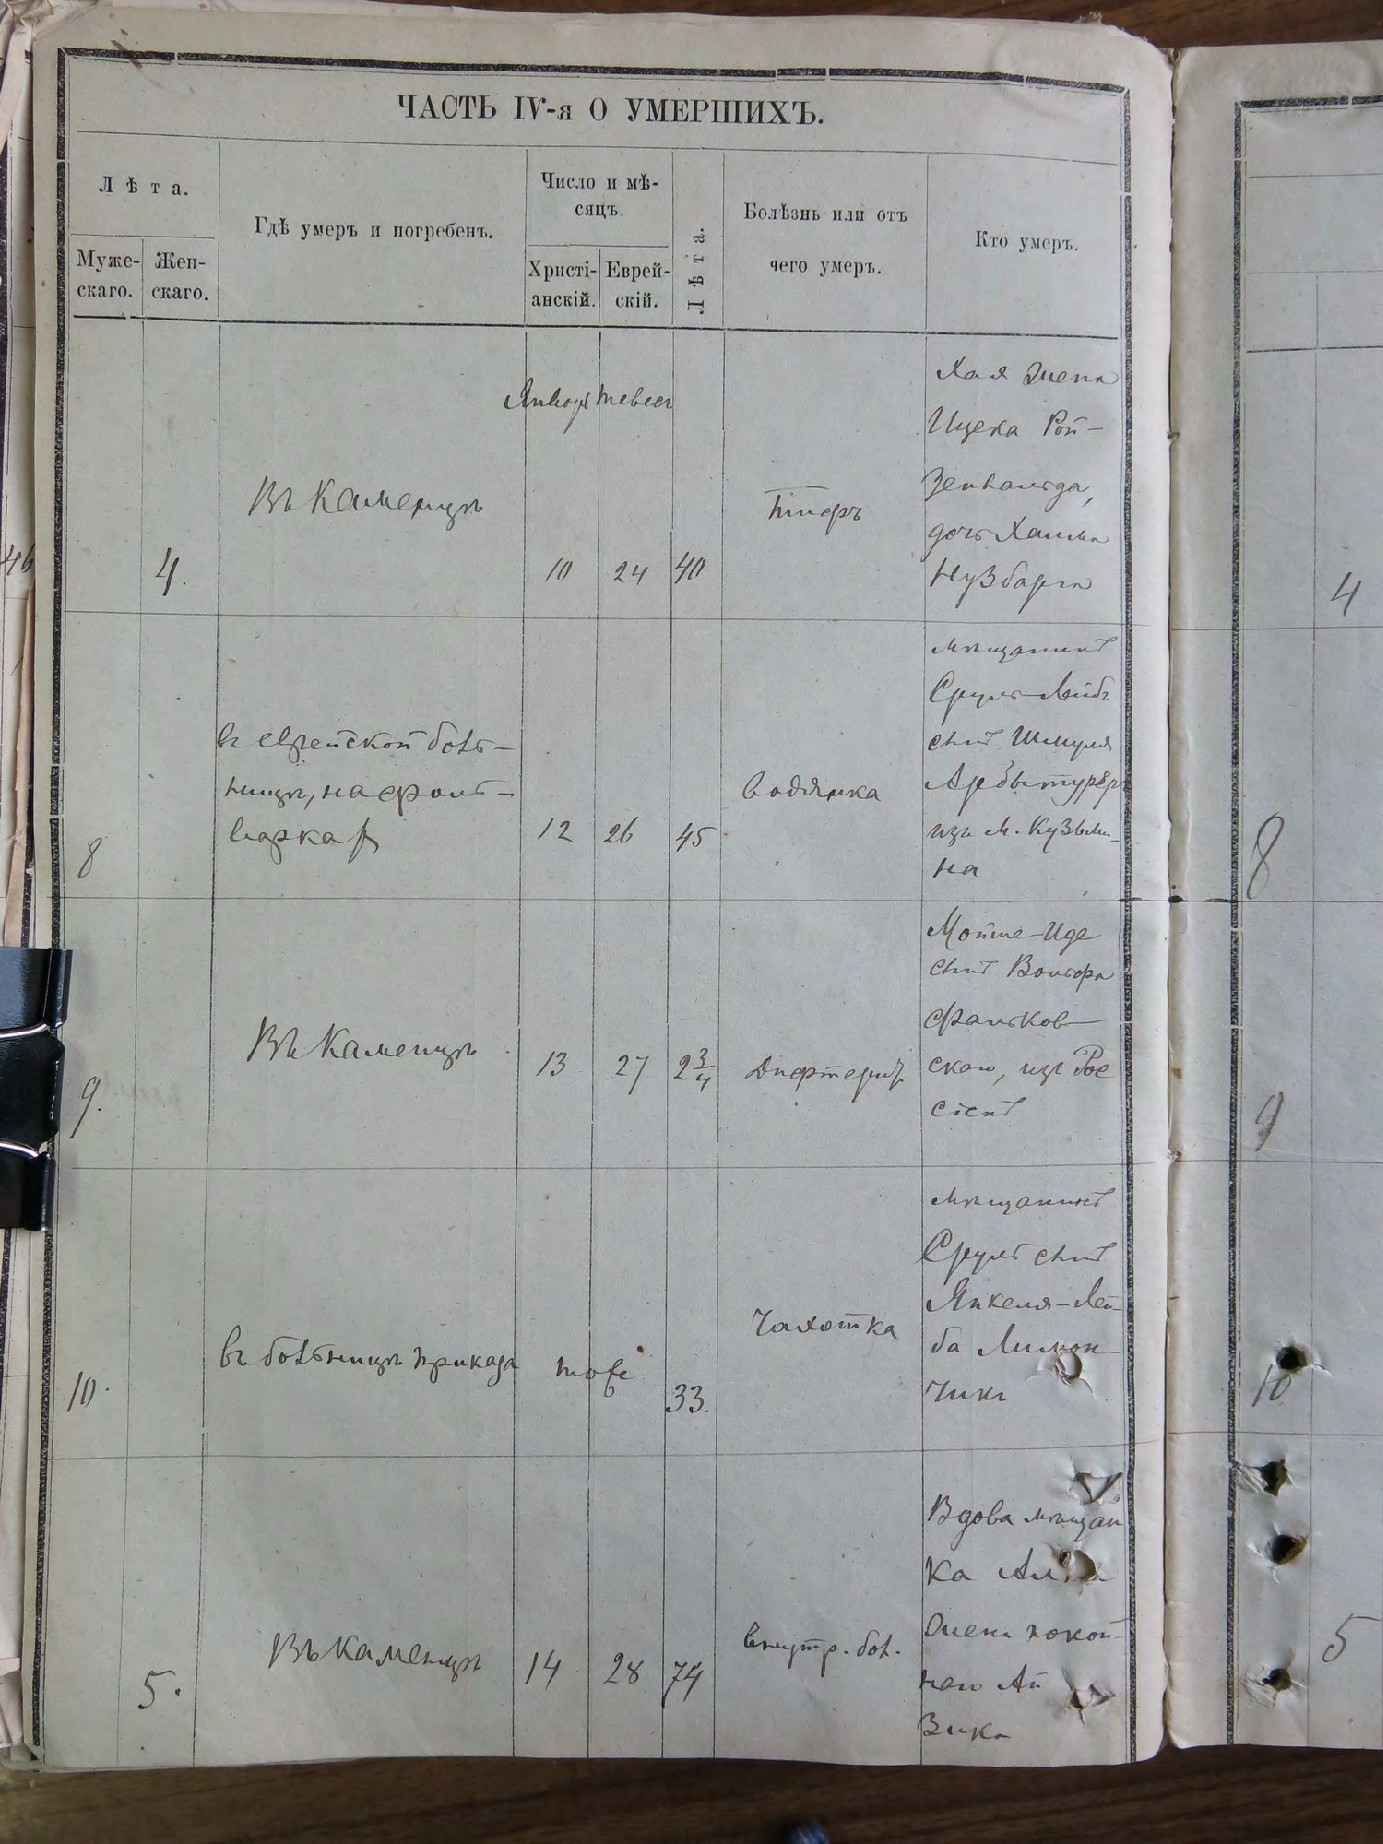 ЧАСТЬ IV-я О УМЕРШИХЪ.
Лѣта.
Муже-
скаго.
Жен-
скаго.
Гдѣ умеръ и погребенъ.
Число и мѣ-
сяцъ
Христі-
анскій.
Еврей-
скій.
Лѣта.
Болѣзнь или отъ
чего умеръ.
Кто умеръ.
46
Январь Тевесъ
4.
Въ Каменцѣ
10
24
40
Тифъ
Хая жена
Ицека Рой-
зенвальда,
дочь Хаима
Нузбарга
4
8
въ еврейской боль-
ницѣ, на фоль-
варкахъ
12
26
45
водянка
мѣщанинъ
Сруль-Лейбъ
сынъ Шмуля
изъ м. Кузьми-
на
8
9.
Въ Каменцѣ
13
27
2 3/4
Дифтеритъ
Мойше-Иде
сынъ Вольфа
Фальков-
скаго, изъ
9
10.
въ больницѣ приказа
тоже
33.
Чахотка
мѣщанинъ
Сруль сынъ
Янкеля-Лей-
ба Лимон-
чикъ
10
5.
Въ Каменцѣ
14
28
74
внутр. бол.
Вдова мѣщан
ка
жена покой-
наго Ай
зика
5